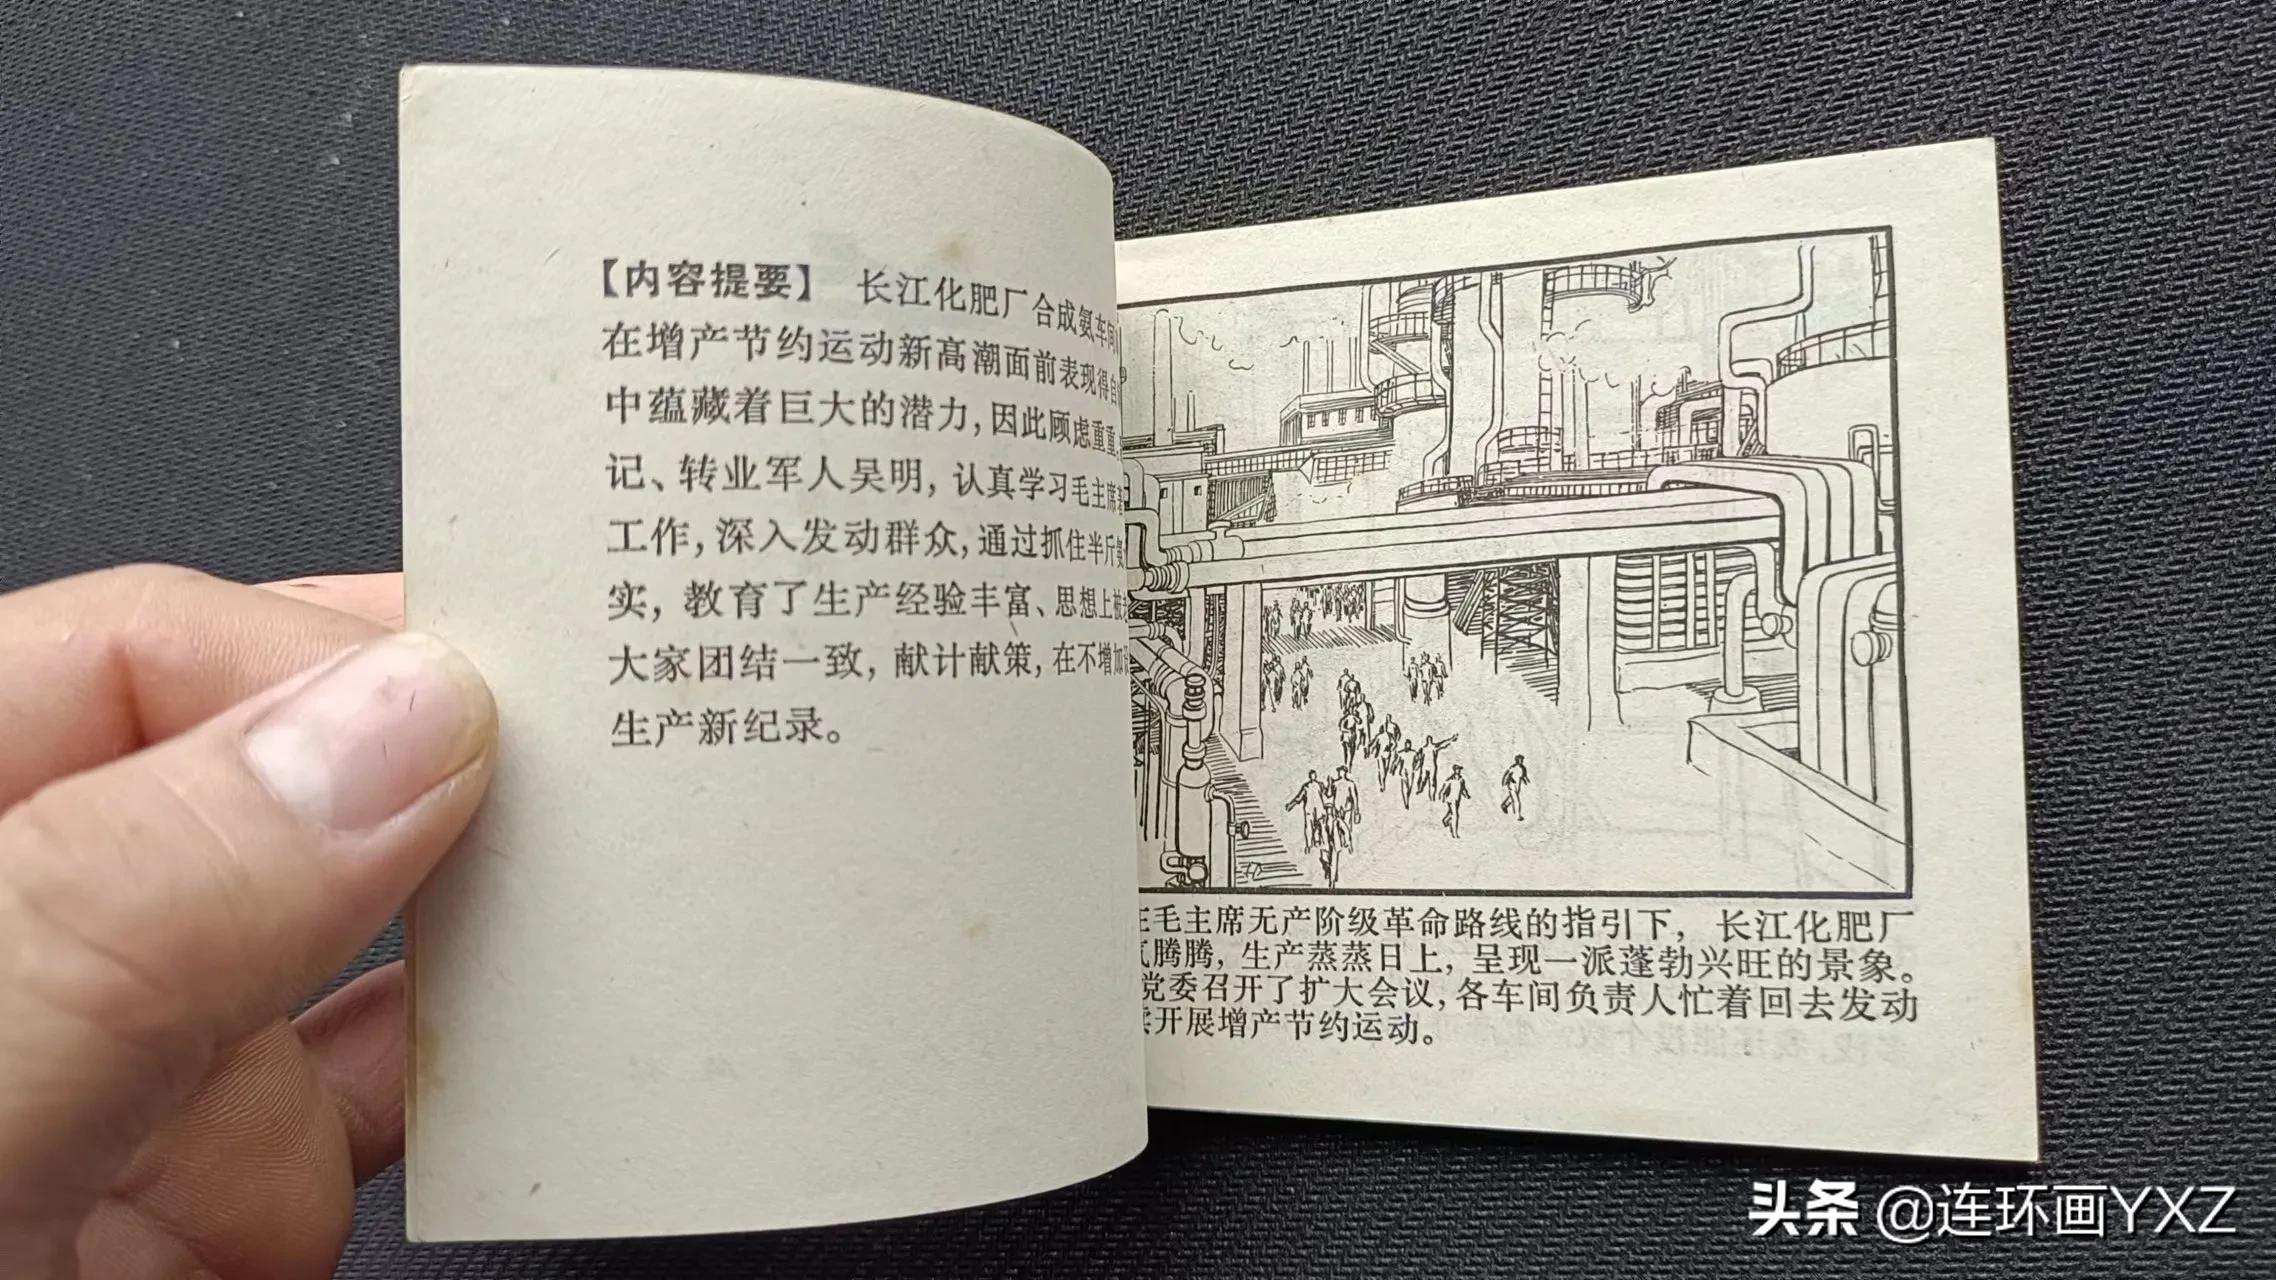 【内容提要】 长江化肥厂合成氨车间
在增产节约运动新高潮面前表现得自
中蕴藏着巨大的潜力，因此顾虑重重
记、转业军人吴明，认真学习毛主席著
工作，深入发动群众，通过抓住半斤
实，教育了生产经验丰富、思想上被
大家团结一致，献计献策，在不增加
生产新纪录。
在毛主席无产阶级革命路线的指引下，长江化肥厂
气腾腾，生产蒸蒸日上，呈现一派蓬勃兴旺的景象。
党委召开了扩大会议，各车间负责人忙着回去发动
开展增产节约运动。
头条 @连环画YXZ